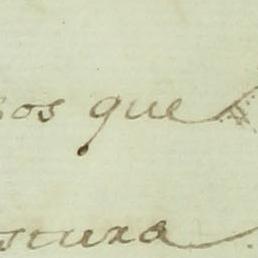 sos que
scura